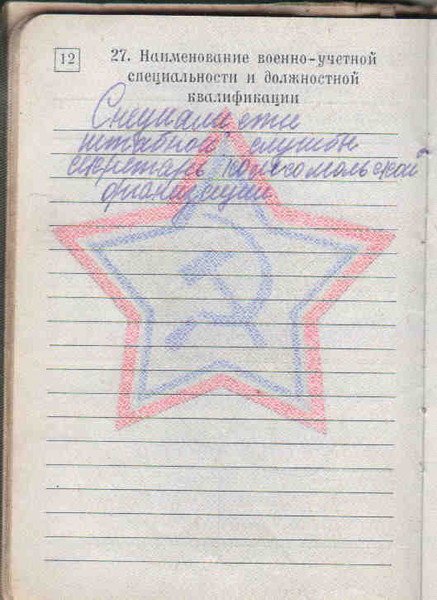 12
27. Наименование военно-учетной
специальности и должностной
квалификации
Специалисты
штабной службы
секретарь комсомольской
организации